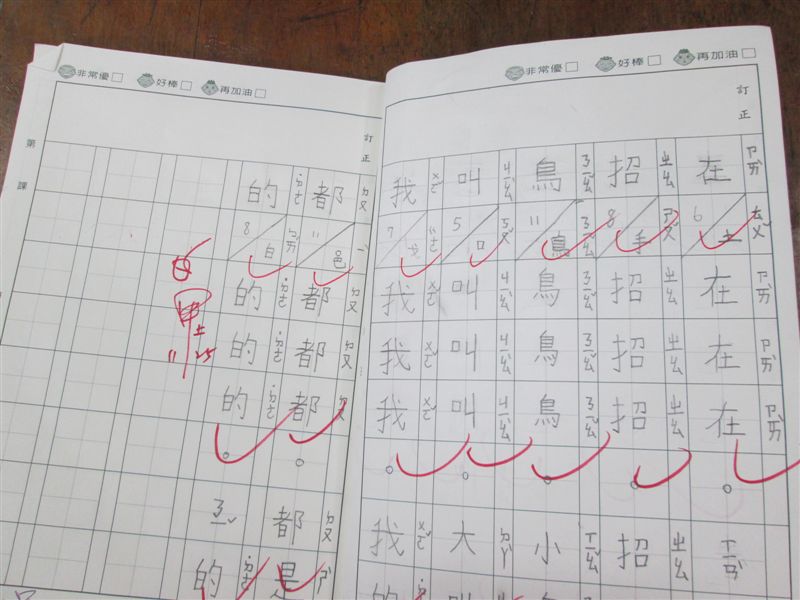 非常優 好棒 再加油
訂正
在 ㄗㄞˋ
6 土 ㄊㄨˇ
在 ㄗㄞˋ
在 ㄗㄞˋ
在 ㄗㄞˋ
。
招 ㄓㄠ
8 手
招 ㄓㄠ
招 ㄓㄠ
招 ㄓㄠ
。
招 ㄓㄠ
鳥 ㄋㄧㄠˇ
11 鳥 ㄋㄧㄠˇ
鳥 ㄋㄧㄠˇ
鳥 ㄋㄧㄠˇ
鳥 ㄋㄧㄠˇ
。
小 ㄒㄧㄠˇ
叫 ㄐㄧㄠˋ
5 口 ㄎㄡˇ
叫 ㄐㄧㄠˋ
叫 ㄐㄧㄠˋ
叫 ㄐㄧㄠˋ
。
大 ㄉㄚˋ
我 ㄨㄛˇ
7
我 ㄨㄛˇ
我 ㄨㄛˇ
我 ㄨㄛˇ
。
我 ㄨㄛˇ
的 ˙ㄉㄜ
非常優 好棒 再加油
訂正
都 ㄉㄡ
11 邑 ㄧˋ
都 ㄉㄡ
都 ㄉㄡ
都 ㄉㄡ
。
都 ㄉㄡ
是 ㄕˋ
的 ˙ㄉㄜ
8 白 ㄅㄞˊ
的 ˙ㄉㄜ
的 ˙ㄉㄜ
的 ˙ㄉㄜ
。
的 ˙ㄉㄜ
甲上
11/25
第 課